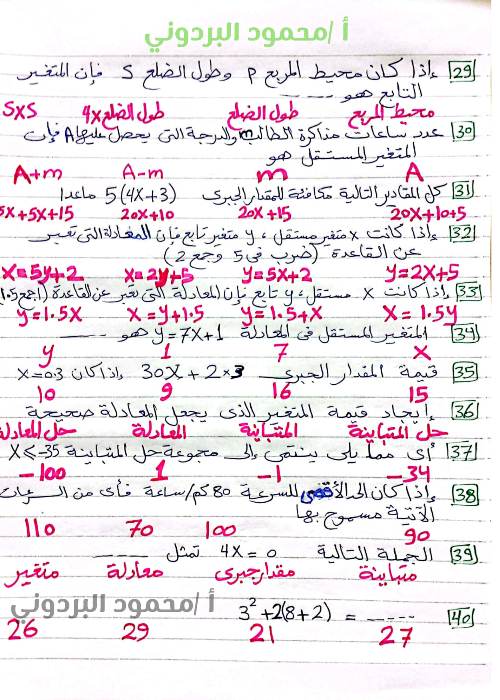 أ /محمود البردوني
29 إذا كان محيط المربع P وطول الضلع S فإن المتغير
التابع هو -----
محيط المربع طول الضلع طول الضلع 4X SXS
30 عدد ساعات مذاكرة الطالب m والدرجة التى يحصل عليها A فإن
المتغير المستقل هو
A m A-m A+m
31 كل المقادير التالية مكافئة للمقدار الجبرى 5(4X+3) ماعدا
20X+10+5 20X+15 20X+10 5X+5X+15
32 إذا كانت X متغير مستقل، y متغير تابع فإن المعادلة التى تعبر
عن القاعدة (ضرب فى 5 وجمع 2)
y=2X+5 y=5X+2 X=2y+5 X=5y+2
33 إذا كانت X مستقل، y تابع فإن المعادلة التى تعبر عن القاعدة (اجمع 1.5
X=1.5y y=1.5+X X=y+1.5 y=1.5X
34 المتغير المستقل فى المعادلة y=7X+1 هو -----
X 7 1 y
35 قيمة المقدار الجبرى 30X+2×3 إذا كان X=0.3
15 16 9 10
36 إيجاد قيمة المتغير الذى يجعل المعادلة صحيحة
حل المتباينة المتباينة المعادلة حل المعادلة
37 أى مما يلى ينتمى إلى مجموعة حل المتباينة X<-35
-34 -1 1 -100
38 إذا كان الحد الأقصى للسرعة 80 كم/ساعة فأى من السرعات
الآتية مسموح بها
90 100 70 110
39 الجملة التالية 4X=0 تمثل -----
متباينة مقدار جبرى معادلة متغير
أ /محمود البردوني
40 3²+2(8+2) = -----
27 21 29 26